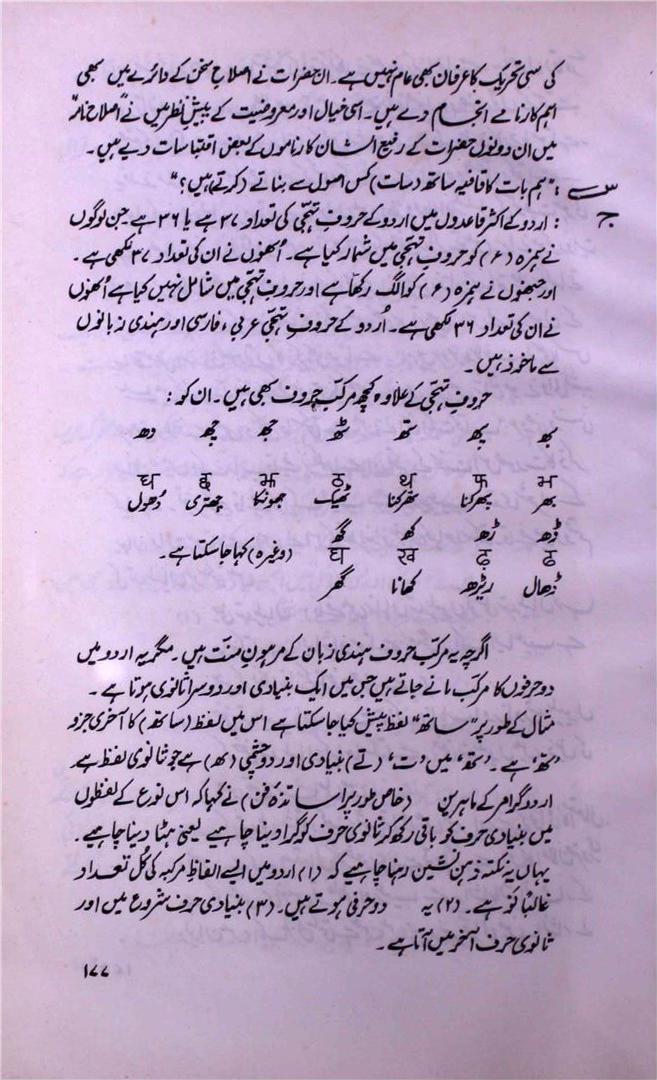 کی سی تحریک کا عرفان بھی عام نہیں ہے۔ ان حضرات نے اصلاحِ سخن کے دائرے میں بھی
اہم کارنامے انجام دے ہیں۔ اسی خیال اور معروضیت کے پیشِ نظر میں نے "اصلاح نامہ"
میں ان دونوں حضرات کے رفیع الشان کارناموں کے بعض اقتباسات دیے ہیں۔
س : "ہم بات کا قافیہ ساتھ (سات) کس اصول سے بناتے (کرتے) ہیں؟"
ج : اردو کے اکثر قاعدوں میں اردو کے حروفِ تہجّی کی تعداد ۳۷ ہے یا ۳۶ ہے جن لوگوں
نے ہمزہ (ء) کو حروفِ تہجّی میں شمار کیا ہے۔ اُنھوں نے ان کی تعداد ۳۷ لکھی ہے۔
اور جنھوں نے ہمزہ (ء) کو الگ رکھا ہے اور حروفِ تہجّی میں شامل نہیں کیا ہے اُنھوں
نے ان کی تعداد ۳۶ لکھی ہے۔ اُردو کے حروفِ تہجّی عربی، فارسی اور ہندی زبانوں
سے ماخوذ ہیں۔
حروفِ تہجّی کے علاوہ کچھ مرکب حروف بھی ہیں۔ ان کو :
بھ پھ تھ ٹھ جھ چھ دھ
भ फ थ ठ झ छ ध
بھر پھرکنا تھرکنا ٹھیک جھونکا چھتری دُھول
ڈھ ڑھ کھ گھ
ढ ढ़ ख घ (وغیرہ) کہا جا سکتا ہے۔
ڈھال ریڑھ کھانا گھر
اگرچہ یہ مرکب حروف ہندی زبان کے مرہونِ منّت ہیں۔ مگر یہ اردو میں
دو حرفوں کا مرکب مانے جاتے ہیں جس میں ایک بنیادی اور دوسرا ثانوی ہوتا ہے۔
مثال کے طور پر "ساتھ" لفظ پیش کیا جا سکتا ہے اس میں لفظ (ساتھ) کا آخری جزو
'تھ' ہے۔ 'تھ' میں 'ت' (تے) بنیادی اور دو چشمی (ھ) ہے جو ثانوی لفظ ہے
اردو گرامر کے ماہرین (خاص طور پر اساتذۂ فن) نے کہا کہ اس نوع کے لفظوں
میں بنیادی حرف کو باقی رکھ کر ثانوی حرف کو گرا دینا چاہیے یعنی ہٹا دینا چاہیے۔
یہاں یہ نکتہ ذہن نشین رہنا چاہیے کہ (۱) اردو میں ایسے الفاظِ مرکبہ کی کُل تعداد
غالباً نو ہے۔ (۲) یہ دو حرفی ہوتے ہیں۔ (۳) بنیادی حرف شروع میں اور
ثانوی حرف آخر میں آتا ہے۔
۱۷۷